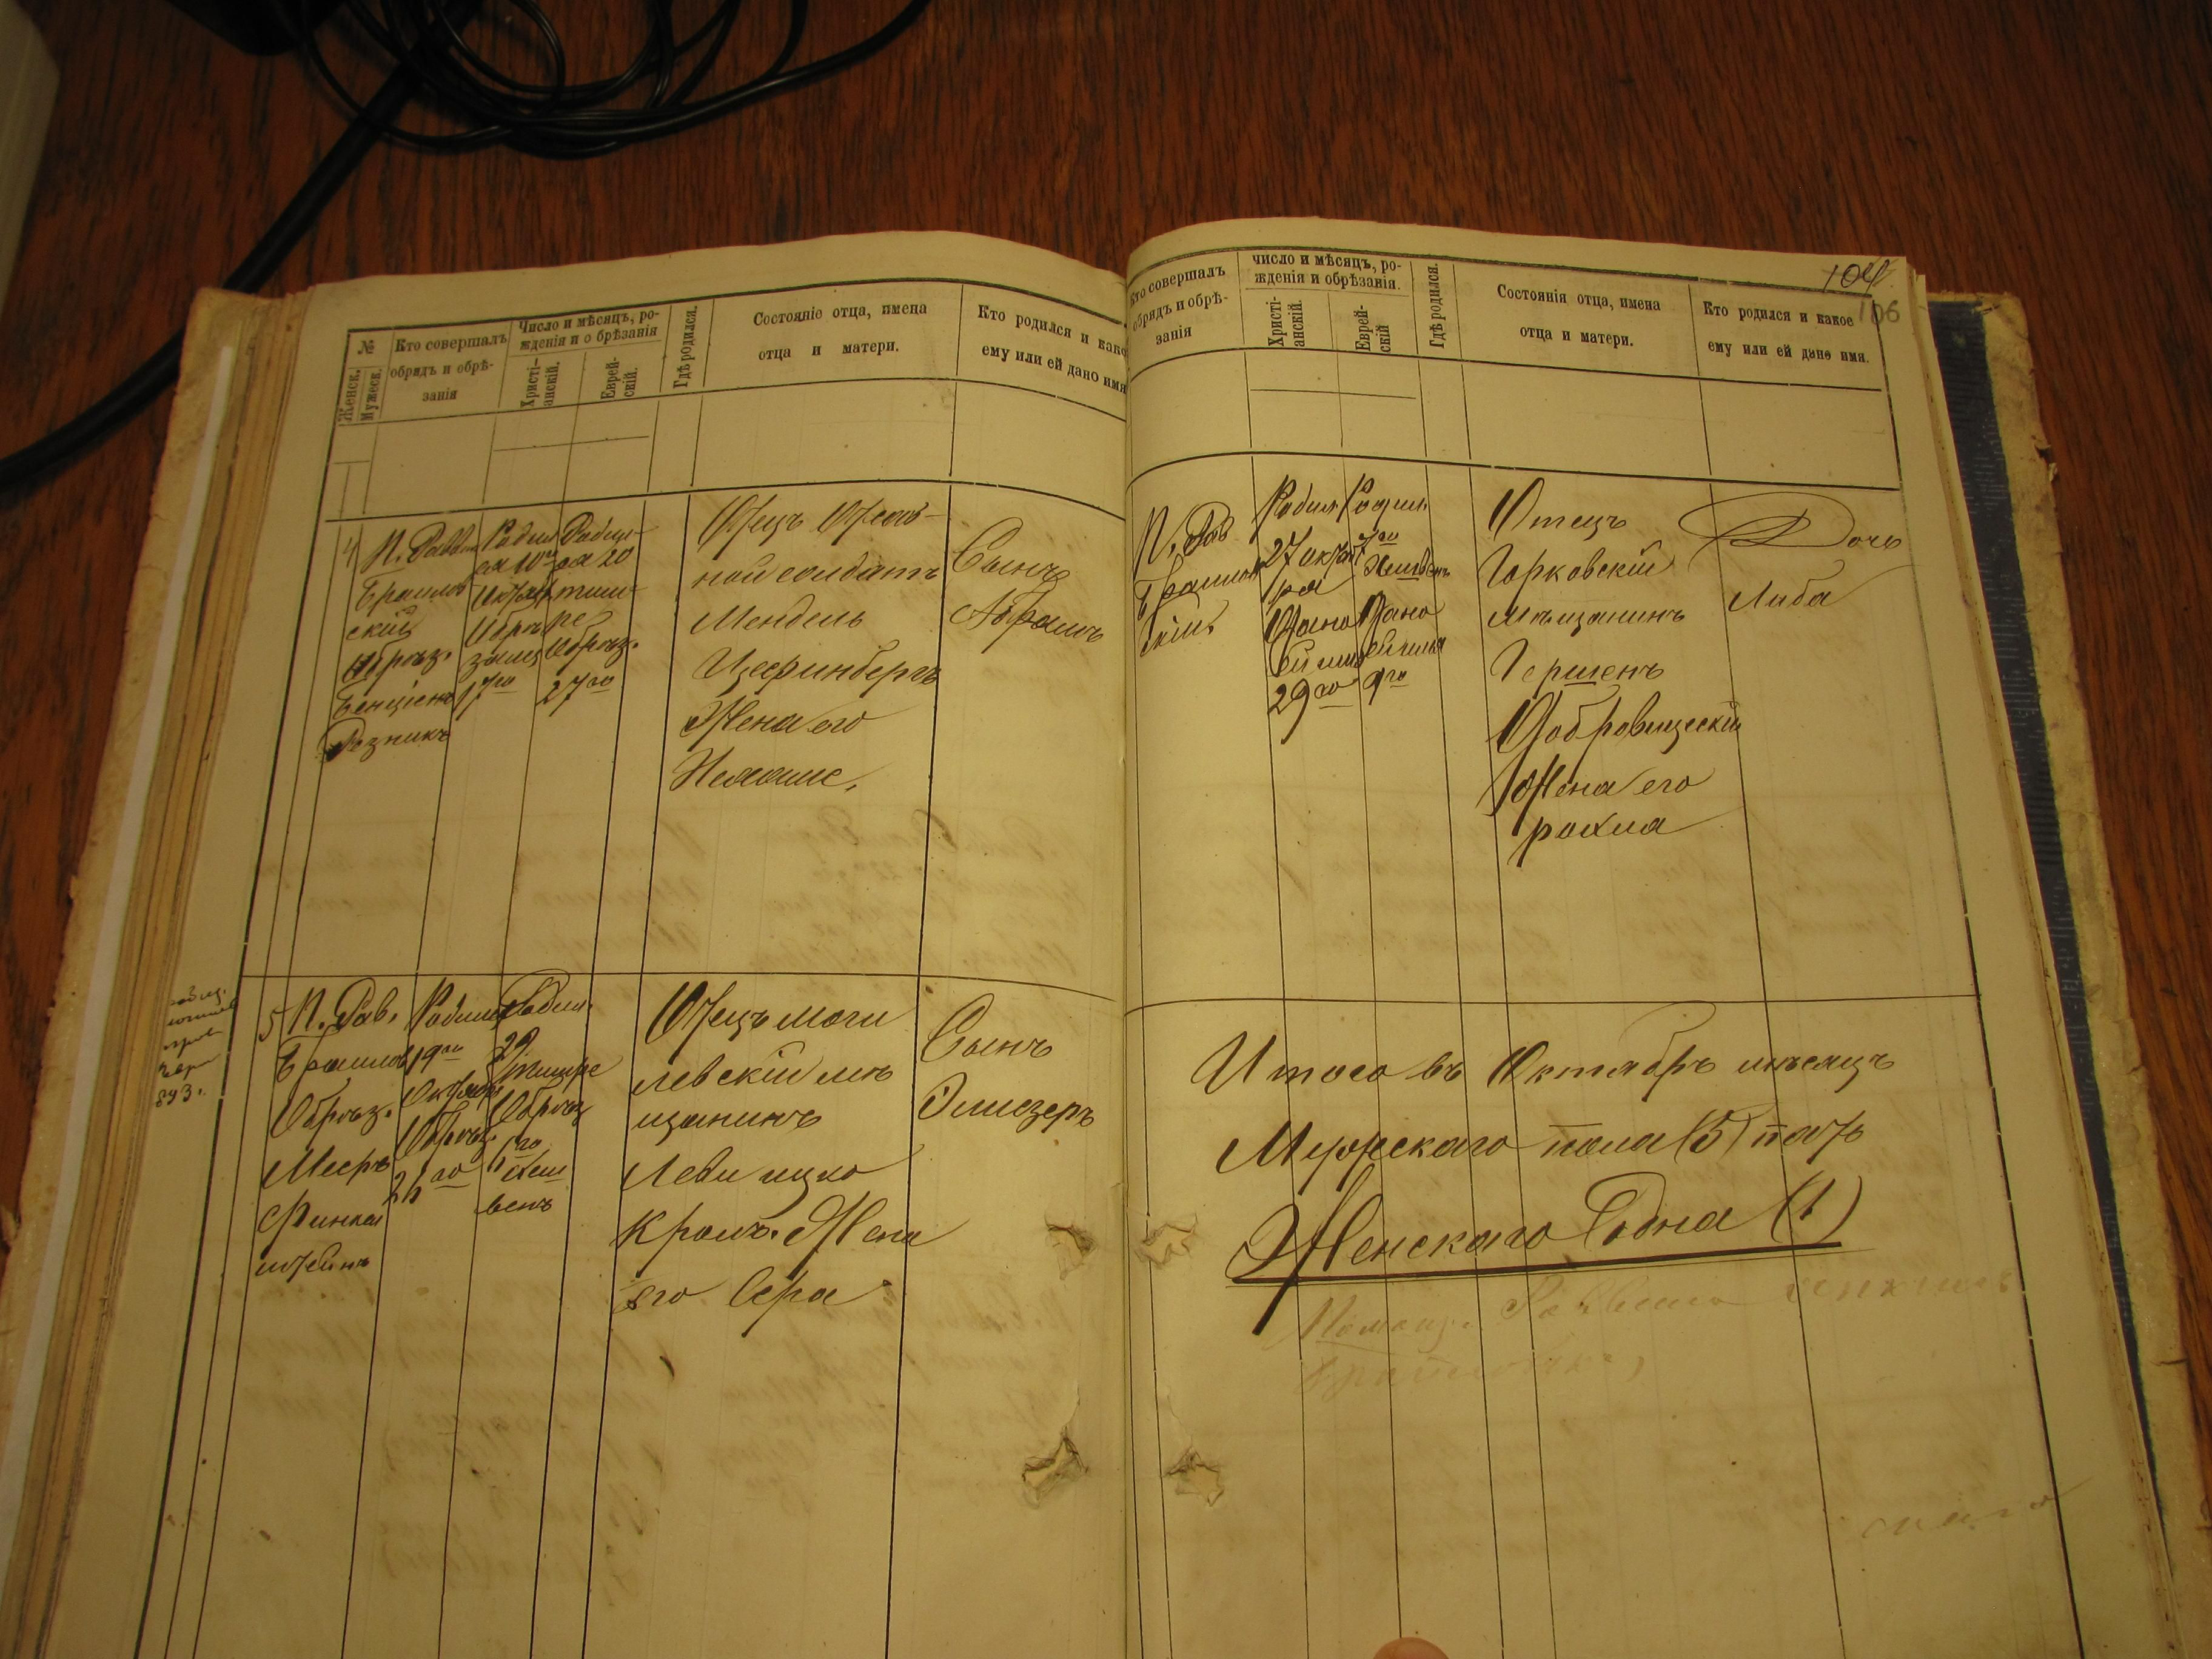 №
Женск.
Мужеск.
Кто совершалъ
обрядъ и обрѣ-
занія
Число и мѣсяцъ, ро-
жденія и о брѣзанія
Христі-
анскій.
Еврей-
скій.
Гдѣ родился.
Состояніе отца, имена
отца и матери.
Кто родился и како
ему или ей дано имя
4
П. Равви
Браилов
скій
Обрѣз.
Бенціонъ
Резникъ
Родил
ся 10го
Октяб
Обрѣ
занъ
17го
Родил
ся 20
тиш
ре
Обрѣз.
27го
Отецъ Отстав-
ной солдатъ
Мендель
Жена его
Сынъ
Абрамъ
893.
5
П. Рав.
Браилов
Обрѣз.
Мееръ
Финкел
штейнъ
Родил
19го
Октяб
Обрѣз.
26го
Родил.
29
тишре
Обрѣз
6го
Хеш
венъ
Отецъ моги
левскій мѣ
щанинъ
Леви ицко
Кролъ. Жена
его Сура
Сынъ
Элиезеръ
104.
106
Кто совершалъ
обрядъ и обрѣ-
занія
число и мѣсяцъ, ро-
жденія и обрѣзанія.
Христі-
анскій.
Еврей-
скій
Гдѣ родился.
Состоянія отца, имена
отца и матери.
Кто родился и какое
ему или ей дано имя.
П. Рав
Браилов
скій.
Родил
27 октяб
ра
Дано
ей имя
29го
Родил.
7го
Хешвенъ
Дано
ей имя
9го
Отецъ
Горковскій
мѣщанинъ
Гершенъ
Жена его
рохля
Дочь
Либа
Итого въ Октябрѣ мѣсяцѣ
Мужескаго пола (5) пять
Женскаго Одна (1)